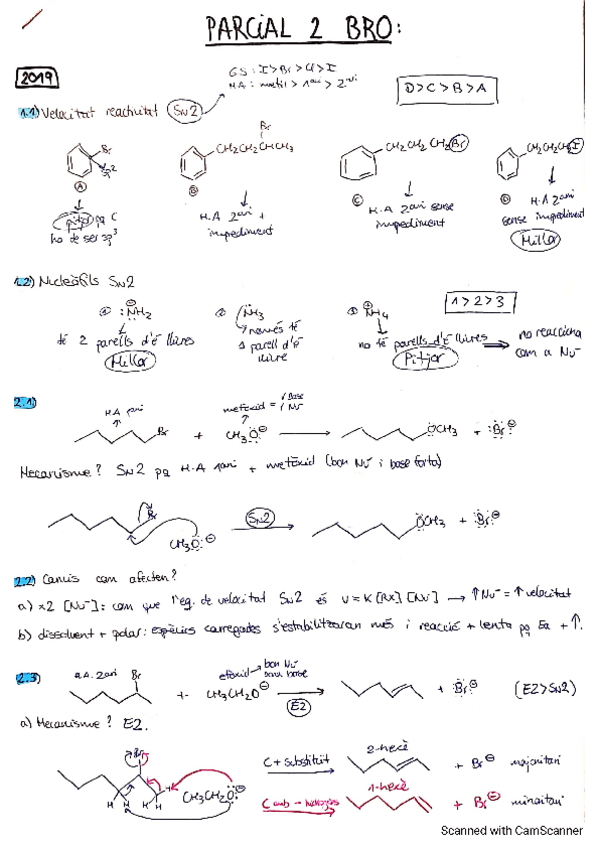 PARCIAL 2 BRO:
2019
GS: I > Br > Cl > I
HA: metil > 1ari > 2ari
D > C > B > A
1.1) Velocitat reactivitat SN2
Br
SN2
Br
CH2CH2CHCH3
CH2CH2CH2Br
CH2CH2CH2I
A
B
C
D
pitjor pq C
ha de ser sp3
H.A 2ari +
impediment
H.A 2ari sense
impediment
H.A 2ari
sense impediment
Millor
1.2) Nucleòfils SN2
1 > 2 > 3
1 :NH2 ⊖
2 NH3
3 NH4 ⊕
té 2 parells d'é lliures
Millor
només té
1 parell d'é
lliure
no té parells d'é lliures
Pitjor
no reacciona
com a Nu-
2.1)
H.A 1ari
metòxid = Base
Nu-
Br + CH3O⊖ → OCH3 + :Br:⊖
Mecanisme? SN2 pq H.A 1ari + metòxid (bon Nu- i base forta)
Br
CH3O:⊖
SN2
OCH3 + :Br:⊖
2.2) Canvis com afecten?
a) x2 [Nu-]: com que l'eq. de velocitat SN2 és v = K [RX] [Nu-] → ↑Nu- = ↑velocitat
b) dissolvent + polar: espècies carregades s'estabilitzaran més i reacció + lenta pq Ea + ↑.
2.3)
2ari
Br
etòxid → bon Nu-
bona base
+ CH3CH2O⊖
E2
+ :Br:⊖ (E2 > SN2)
a) Mecanisme? E2.
Br
H H H
CH3CH2O:⊖
C + substituït
2-hexè
+ Br⊖ majoritari
C amb + hidrògens
1-hexè
+ Br⊖ minoritari
Scanned with CamScanner